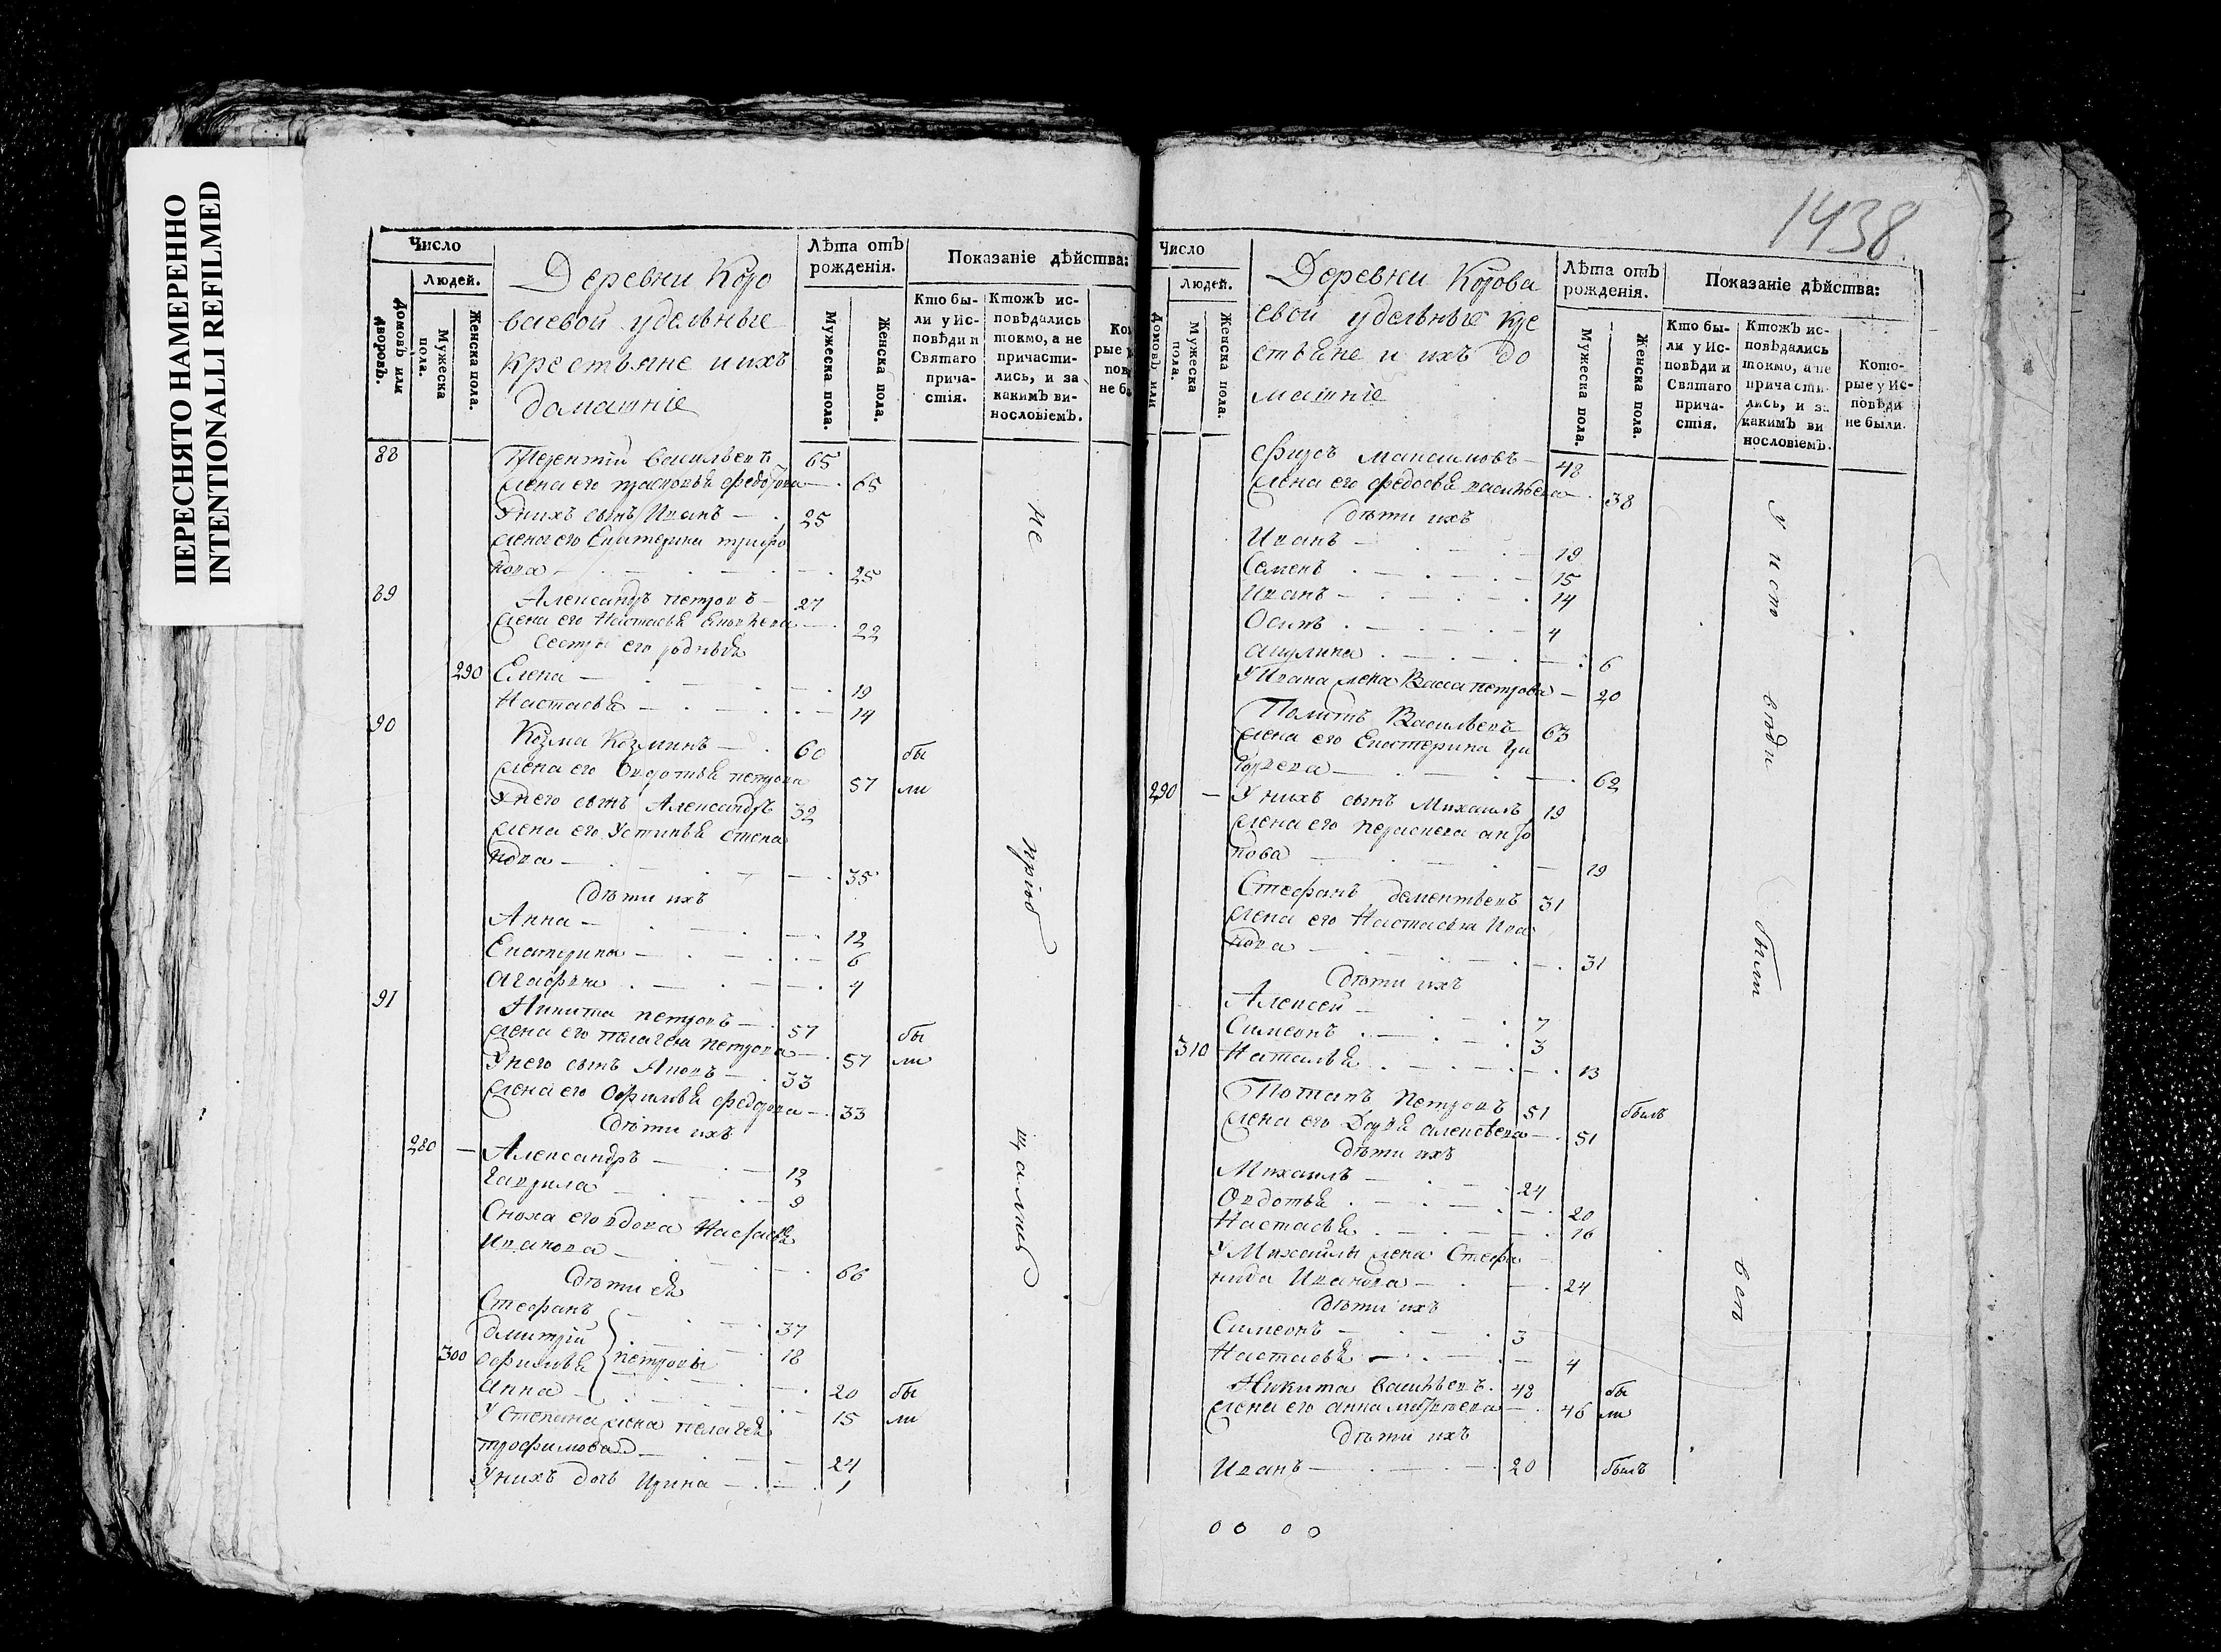 ПЕРЕСНЯТО НАМЕРЕННО
INTENTIONALLI REFILMED
Число
Людей.
Домовъ или дворовъ.
Мужеска пола.
Женска пола.
Деревни Коро
ваевой удельные
крестьяне и ихъ
домашніе
Лѣта отъ рожденія.
Мужеска пола.
Женска пола.
Показаніе дѣйства:
Кто бы-
ли у Ис-
повѣди и
Святаго
прича-
стія.
Ктожъ ис-
повѣдались
токмо, а не
причасти-
лись, и за
какимъ ви-
нословіемъ.
88 Терентій васильевъ 65
жена его прасковья федорова 65
У нихъ сынъ Иванъ 25
жена его Екатерина трифо
нова 25
89 Александръ петровъ 27
жена его Настасья 22
Сестры его родныя
290 Елена 19
Настасья 14
90 Козма Козминъ 60 бы
жена его Овдотья петрова 57 ли
У него сынъ Александръ 32
жена его Устинья степа
нова 35
дѣти ихъ
Анна 12
Екатерина 6
агафья 4
91 Никита петровъ 57 бы
жена его пелагея петрова 57 ли
У него сынъ Яковъ 33
жена его Офимья федорова 33
дѣти ихъ
280 Александръ 12
Гаврила 9
Сноха его вдова Настасья
Иванова 66
дѣти ея
Стефанъ 37
дмитрій петровы 18
300 офимья 20 бы
анна 15 ли
У степана жена пелагея
трофимова 24
У нихъ дочь Ирина 1
не
щалися
1438
Число
Людей.
Домовъ или
Мужеска пола.
Женска пола.
Деревни Корова
евой удельные кре
стьяне и ихъ до
машніе
Лѣта отъ рожденія.
Мужеска пола.
Женска пола.
Показаніе дѣйства:
Кто бы-
ли у Ис-
повѣди и
Святаго
прича-
стія.
Ктожъ ис-
повѣдались
токмо, а не
причасти-
лись, и за
какимъ ви
нословіемъ.
Кото-
рые у Ис-
повѣди
не были.
Фирсъ Максимовъ 48
жена его федосья васильева 38
дѣти ихъ
Иванъ 19
Семенъ 15
Иванъ 14
Осипъ 4
акулина 6
У Ивана жена Васса петрова 20
Васильевъ 63
жена его Екатерина Гри
горьева 62
290 У нихъ сынъ Михаилъ 19
жена его
нова 19
Стефанъ дементьевъ 31
жена его Настасья Ива
нова 31
дѣти ихъ
Алексей 7
Симеонъ 3
310 Наталья 13
Потапъ Петровъ 51 былъ
жена его Дарья алексеева 51
дѣти ихъ
Михаилъ 24
Овдотья 20
Настасья 16
У Михайлы жена Стефа
нида Иванова 24
дѣти ихъ
Симеонъ 3
Настасья 4
Никита васильевъ 48 бы
жена его анна матвеева 46 ли
дѣти ихъ
Иванъ 20 былъ
У испо веди